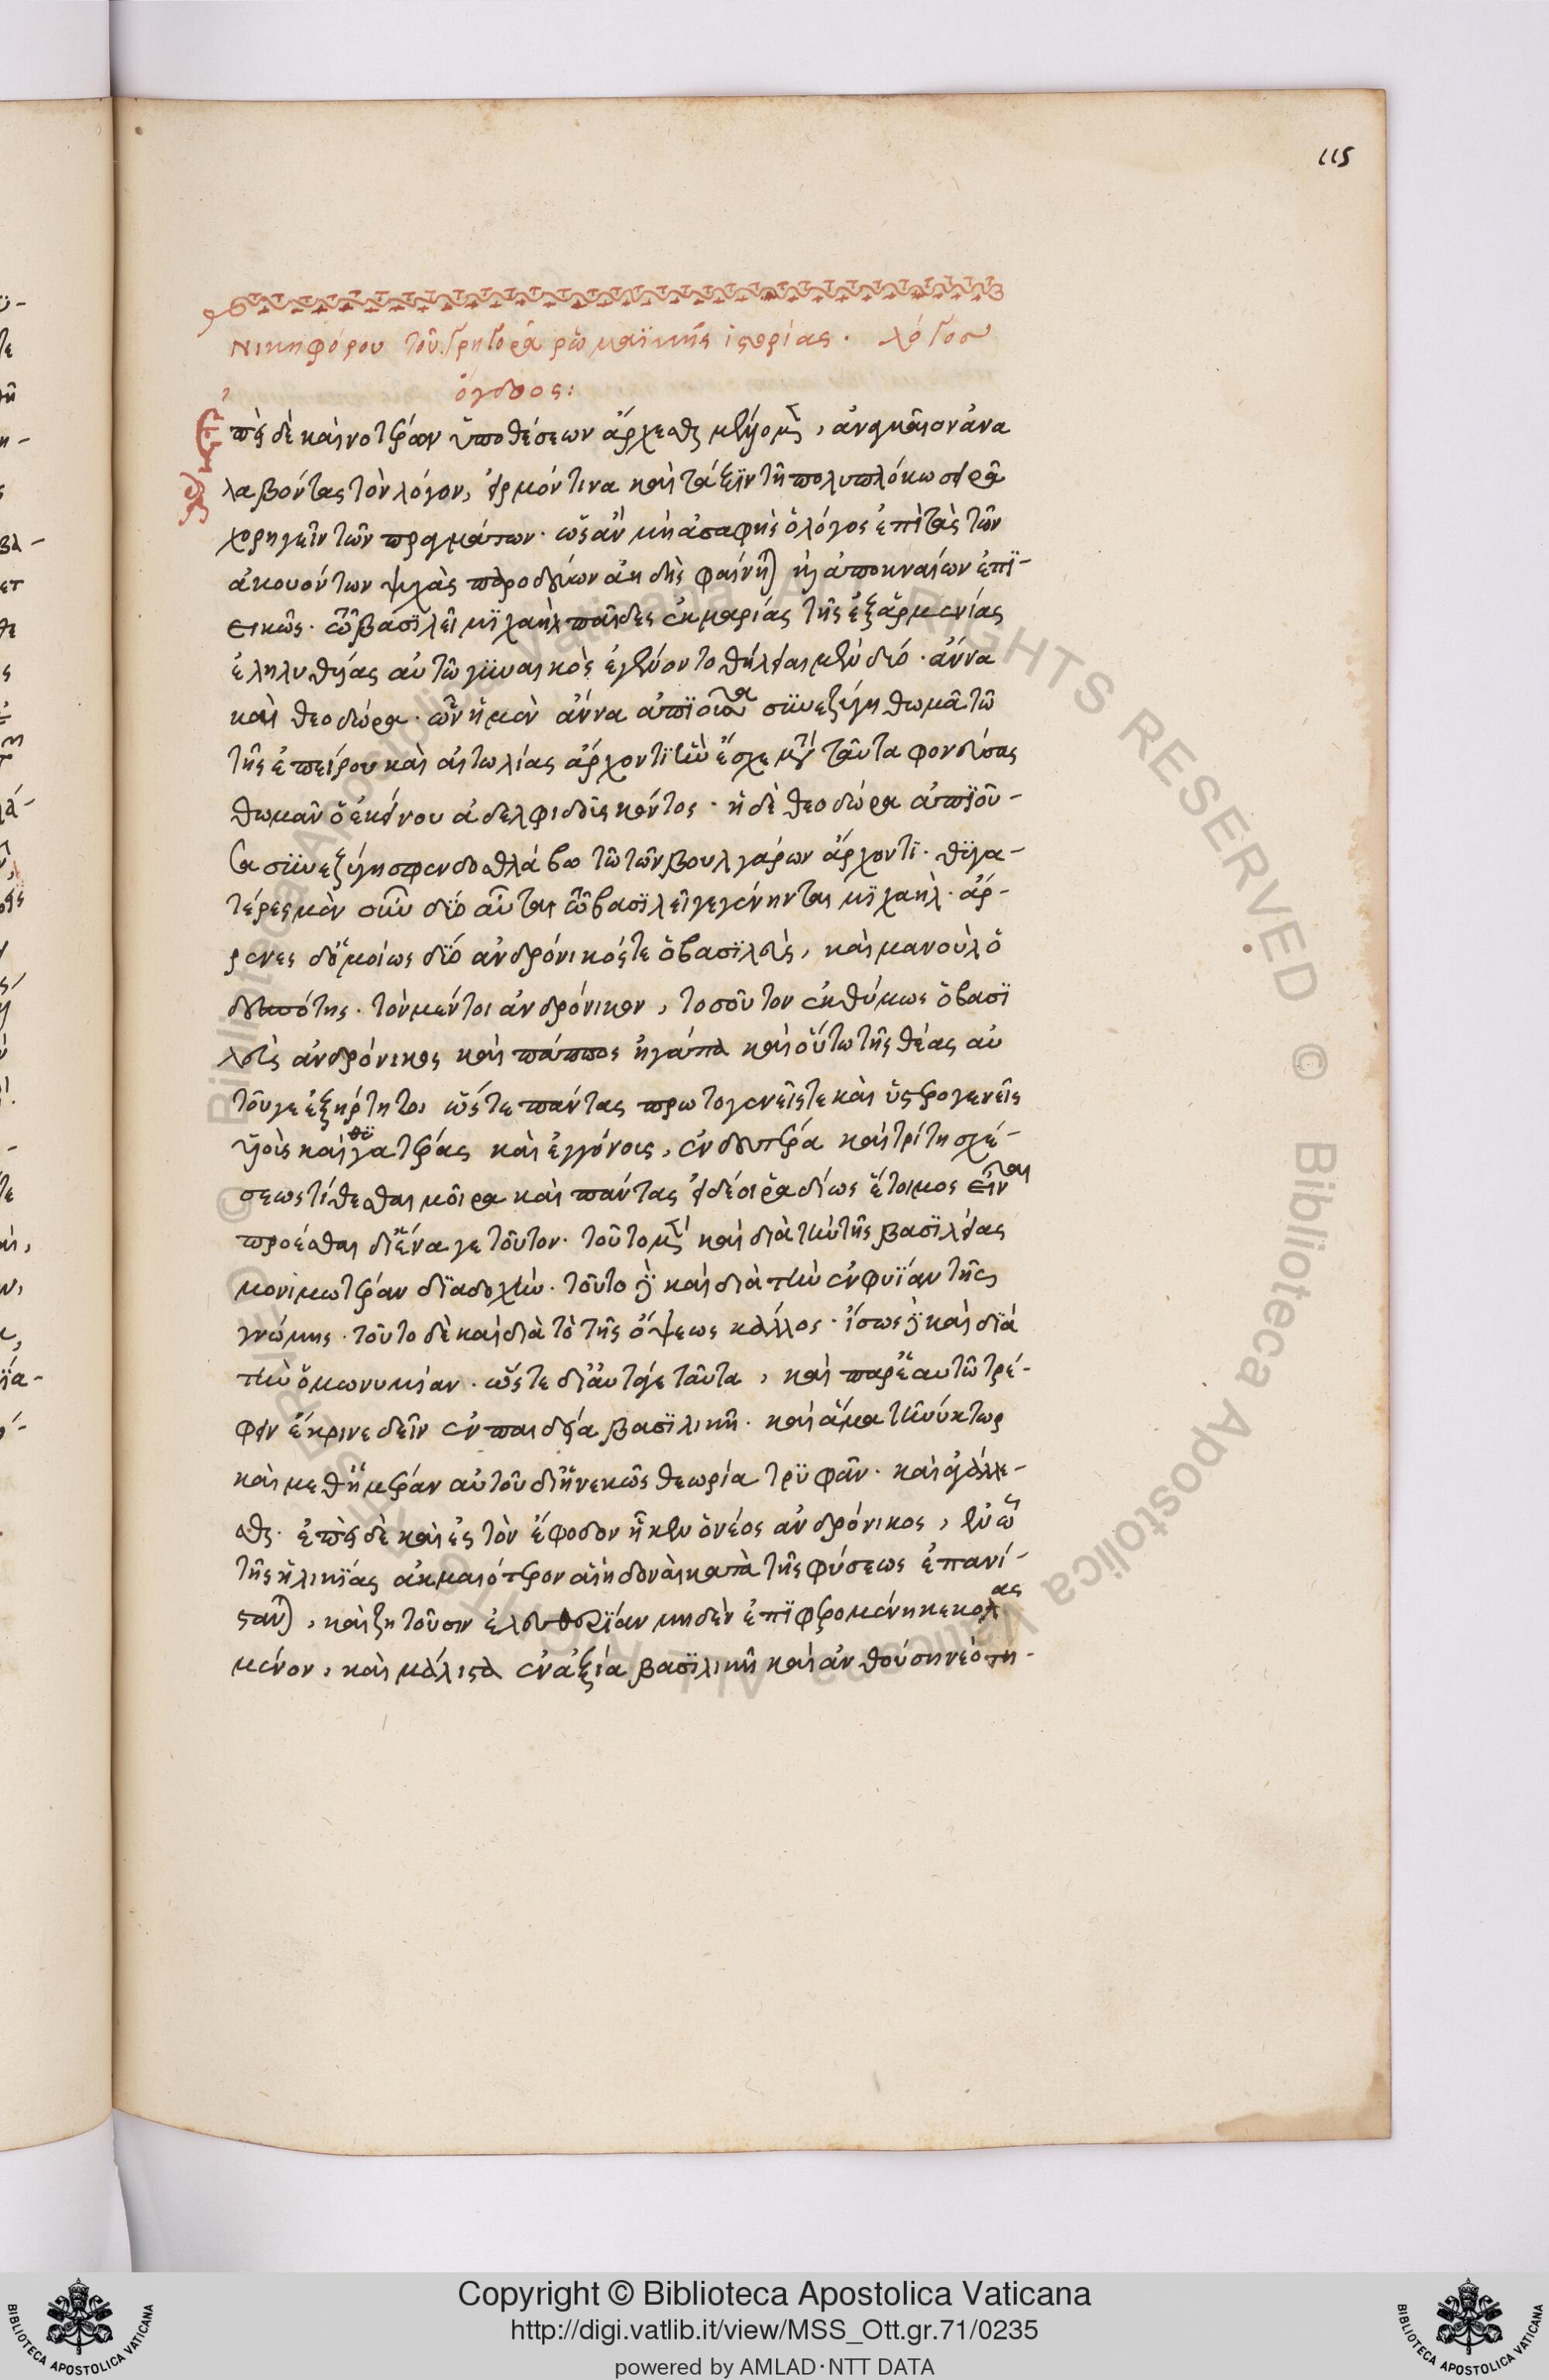 115
Νικηφόρου τοῦ Γρηγορᾶ ῥωμαϊκῆς ἱστορίας. λόγος
ὄγδοος:
Ἐπεὶ δὲ καινοτέρων ὑποθέσεων ἄρχεσθαι μέλλομεν, ἀναγκαῖον ἀνα
λαβόντας τὸν λόγον, εἱρμόν τινα καὶ τάξιν τῇ πολυπλόκω σειρᾶ
χορηγεῖν τῶν πραγμάτων. ὡς ἂν μὴ ἀσαφὴς ὁ λόγος ἐπὶ τὰς τῶν
ἀκουόντων ψυχὰς παροδεύων ἀηδὴς φαίνηται καὶ ἀποκναίων ἐπι-
εικῶς. τῶ βασιλεῖ μιχαὴλ παῖδες ἐκ μαρίας τῆς ἐξ ἀρμενίας
ἐληλυθυίας αὐτῶ γυναικὸς ἐγένοντο θήλειαι μὲν δύο. ἄννα
καὶ θεοδώρα. ὧν ἡ μὲν ἄννα ἀπιοῦσα συνεζύγη θωμᾶ τῶ
τῆς ἠπείρου καὶ αἰτωλίας ἄρχοντι ἣν ἔσχε μετὰ ταῦτα φονεύσας
θωμᾶν ὁ ἐκείνου ἀδελφιδοῦς κόντος. ἡ δὲ θεοδώρα ἀπιοῦ-
σα συνεζύγη σφενδοσθλάβω τῶ τῶν βουλγάρων ἄρχοντι. θυγα-
τέρες μὲν οὖν δύο αὗται τῶ βασιλεῖ γεγένηνται μιχαήλ. ἄρ-
ρενες δ' ὁμοίως δύο ἀνδρόνικός τε ὁ βασιλεὺς, καὶ μανουὴλ ὁ
δεσπότης. τὸν μέντοι ἀνδρόνικον, τοσοῦτον ἐκθύμως ὁ βασι
λεὺς ἀνδρόνικος καὶ πάππος ἠγάπα καὶ οὕτω τῆς θέας αὐ
τοῦ γε ἐξήρτητο, ὥστε πάντας πρωτογενεῖς τε καὶ ὑστερογενεῖς
υἱοὺς καὶ θυγατέρας καὶ ἐγγόνους, ἐν δευτέρα καὶ τρίτη σχέ-
σεως τίθεσθαι μοίρα καὶ πάντας εἰ δέοι ῥαδίως ἕτοιμος εἶναι
προέσθαι δι' ἕνα γε τοῦτον. τοῦτο μὲν καὶ διὰ τὴν τῆς βασιλείας
μονιμωτέραν διαδοχήν. τοῦτο δὲ καὶ διὰ τὴν εὐφυΐαν τῆς
γνώμης. τοῦτο δὲ καὶ διὰ τὸ τῆς ὄψεως κάλλος. ἴσως δὲ καὶ διὰ
τὴν ὁμωνυμίαν. ὥστε δι' αὐτά γε ταῦτα, καὶ παρ' ἑαυτῶ τρέ-
φειν ἔκρινε δεῖν ἐν παιδεία βασιλικῆ. καὶ ἅμα τῆ νύκτωρ
καὶ μεθ' ἡμέραν αὐτοῦ διηνεκῶς θεωρία τρυφᾶν. καὶ ἀγάλλε-
σθαι. ἐπεὶ δὲ καὶ εἰς τὸν ἔφηβον ἧκεν ὁ νέος ἀνδρόνικος, ἐν ὧ
τῆς ἡλικίας ἀκμαιότερον αἱ ἡδοναὶ κατὰ τῆς φύσεως ἐπανί-
στανται, καὶ ζητοῦσιν ἐλευθερίαν μηδὲν ἐπιφερομένην κεκολασ
μένον, καὶ μάλιστα ἐν ἀξία βασιλικῆ καὶ ἀνθούση νεότη-
Copyright © Biblioteca Apostolica Vaticana
http://digi.vatlib.it/view/MSS_Ott.gr.71/0235
powered by AMLAD·NTT DATA